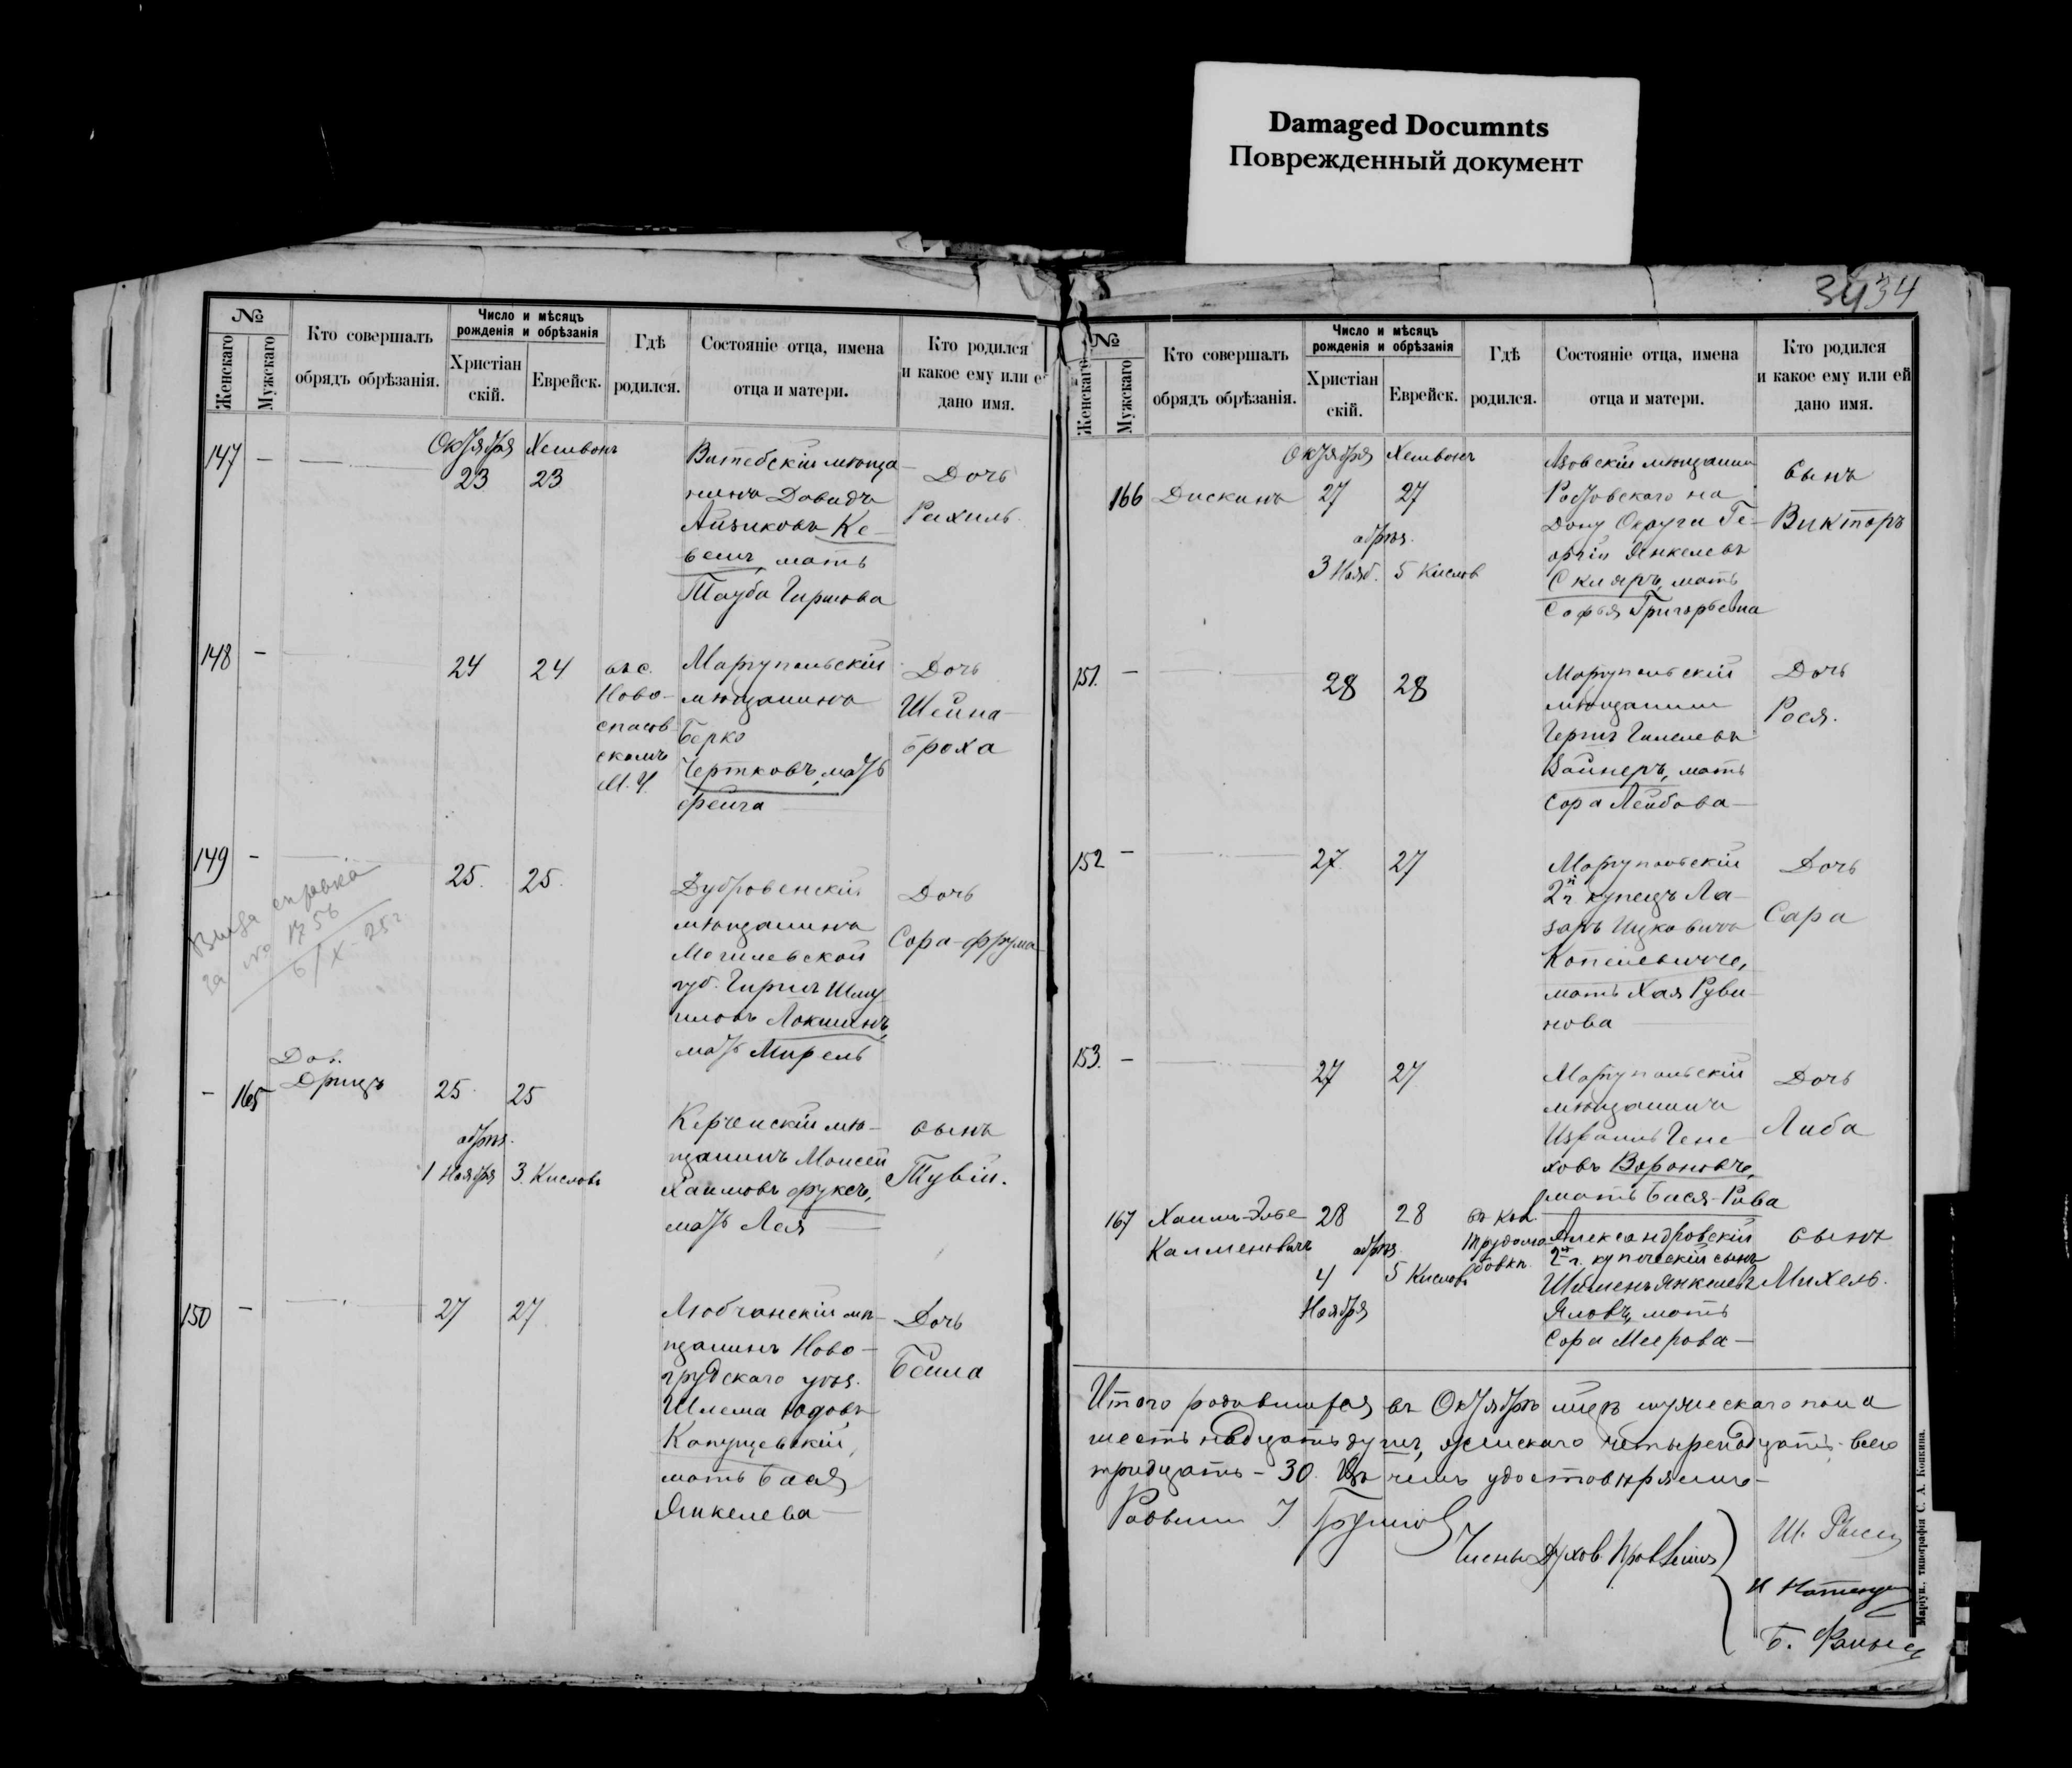 Damaged Documnts
Поврежденный документ
34 34
№
Женскаго
Мужскаго
Кто совершалъ
обрядъ обрѣзанія.
Число и мѣсяцъ
рожденія и обрѣзанія
Христіан
скій.
Еврейск.
Гдѣ
родился.
Состояніе отца, имена
отца и матери.
Кто родился
и какое ему или е
дано имя.
147 —
Октября Хешвонъ
23 23
Витебскій мѣща
нинъ Довидъ
Айзиковъ Ке-
весъ, мать
Тауба Гиршова
Дочь
Рахиль
148 —
24 24
въ с.
Ново-
спасов
скомъ
М. У.
Маріупольскій
мѣщанинъ
Берко
Чертковъ, мать
Фейга
Дочь
Шейна-
Броха
149 —
25. 25.
Выда справка
за № 1756
6/X-25 г.
Дубровенскій
мѣщанинъ
Могилевской
губ. Гиршъ Шму
иловъ Локшинъ,
мать Мирель
Дочь
Сора-Фрума
— 165
Дов.
Дрицъ
25 25
обрѣз.
1 Ноября 3 Кислов
Керченскій мѣ-
щанинъ Моисей
Хаимовъ Фуксъ,
мать Лея
сынъ
Тувій.
150 —
27 27
Любчанскій мѣ-
щанинъ Ново-
грудскаго уѣз.
Шлема Юдовъ
Капущевскій,
мать Бася
Янкелева
Дочь
Бейла
№
Женскаго
Мужскаго
Кто совершалъ
обрядъ обрѣзанія.
Число и мѣсяцъ
рожденія и обрѣзанія
Христіан
скій.
Еврейск.
Гдѣ
родился.
Состояніе отца, имена
отца и матери.
Кто родился
и какое ему или ей
дано имя.
166 Дискинъ
Октября Хешвонъ
27 27
обрѣз.
3 Нояб. 5 Кислов
Азовскій мѣщанинъ
Ростовскаго на
Дону Округа Ге-
оргій Янкелевъ
Скляръ, мать
Софья Григорьевна
сынъ
Викторъ
151. —
28 28
Маріупольскій
мѣщанинъ
Гершъ Гилелевъ
Вайнеръ, мать
Сора Лейбова
Дочь
Рося.
152 —
27 27
Маріупольскій
2й г. купецъ Ла-
зарь Ицковичъ
Копелевичъ,
мать Хая Руви-
нова
Дочь
Сара
153. —
27 27
Маріупольскій
мѣщанинъ
Израиль Гене-
ховъ Вороновъ,
мать Бася-Рива
Дочь
Либа
167 Хаимъ-Эльe
Калменовичъ
28 28
обрѣз.
4 5 Кислов
Ноября
въ кол.
Трудолю
бовкѣ.
Александровскій
2й г. купеческій сынъ
Шименъ Янкелевъ
Яловъ, мать
Сора Меерова
сынъ
Михель.
Итого родившихся въ Октябрѣ мцѣ мужескаго пола
шестьнадцать душъ, женскаго четыренадцать, всего
тридцать - 30. Въ чемъ удостовѣряемъ
Раввинъ
Члены Духов. Правленія
Ш.
Б.
Маріуп., типографія С. А. Копкина.